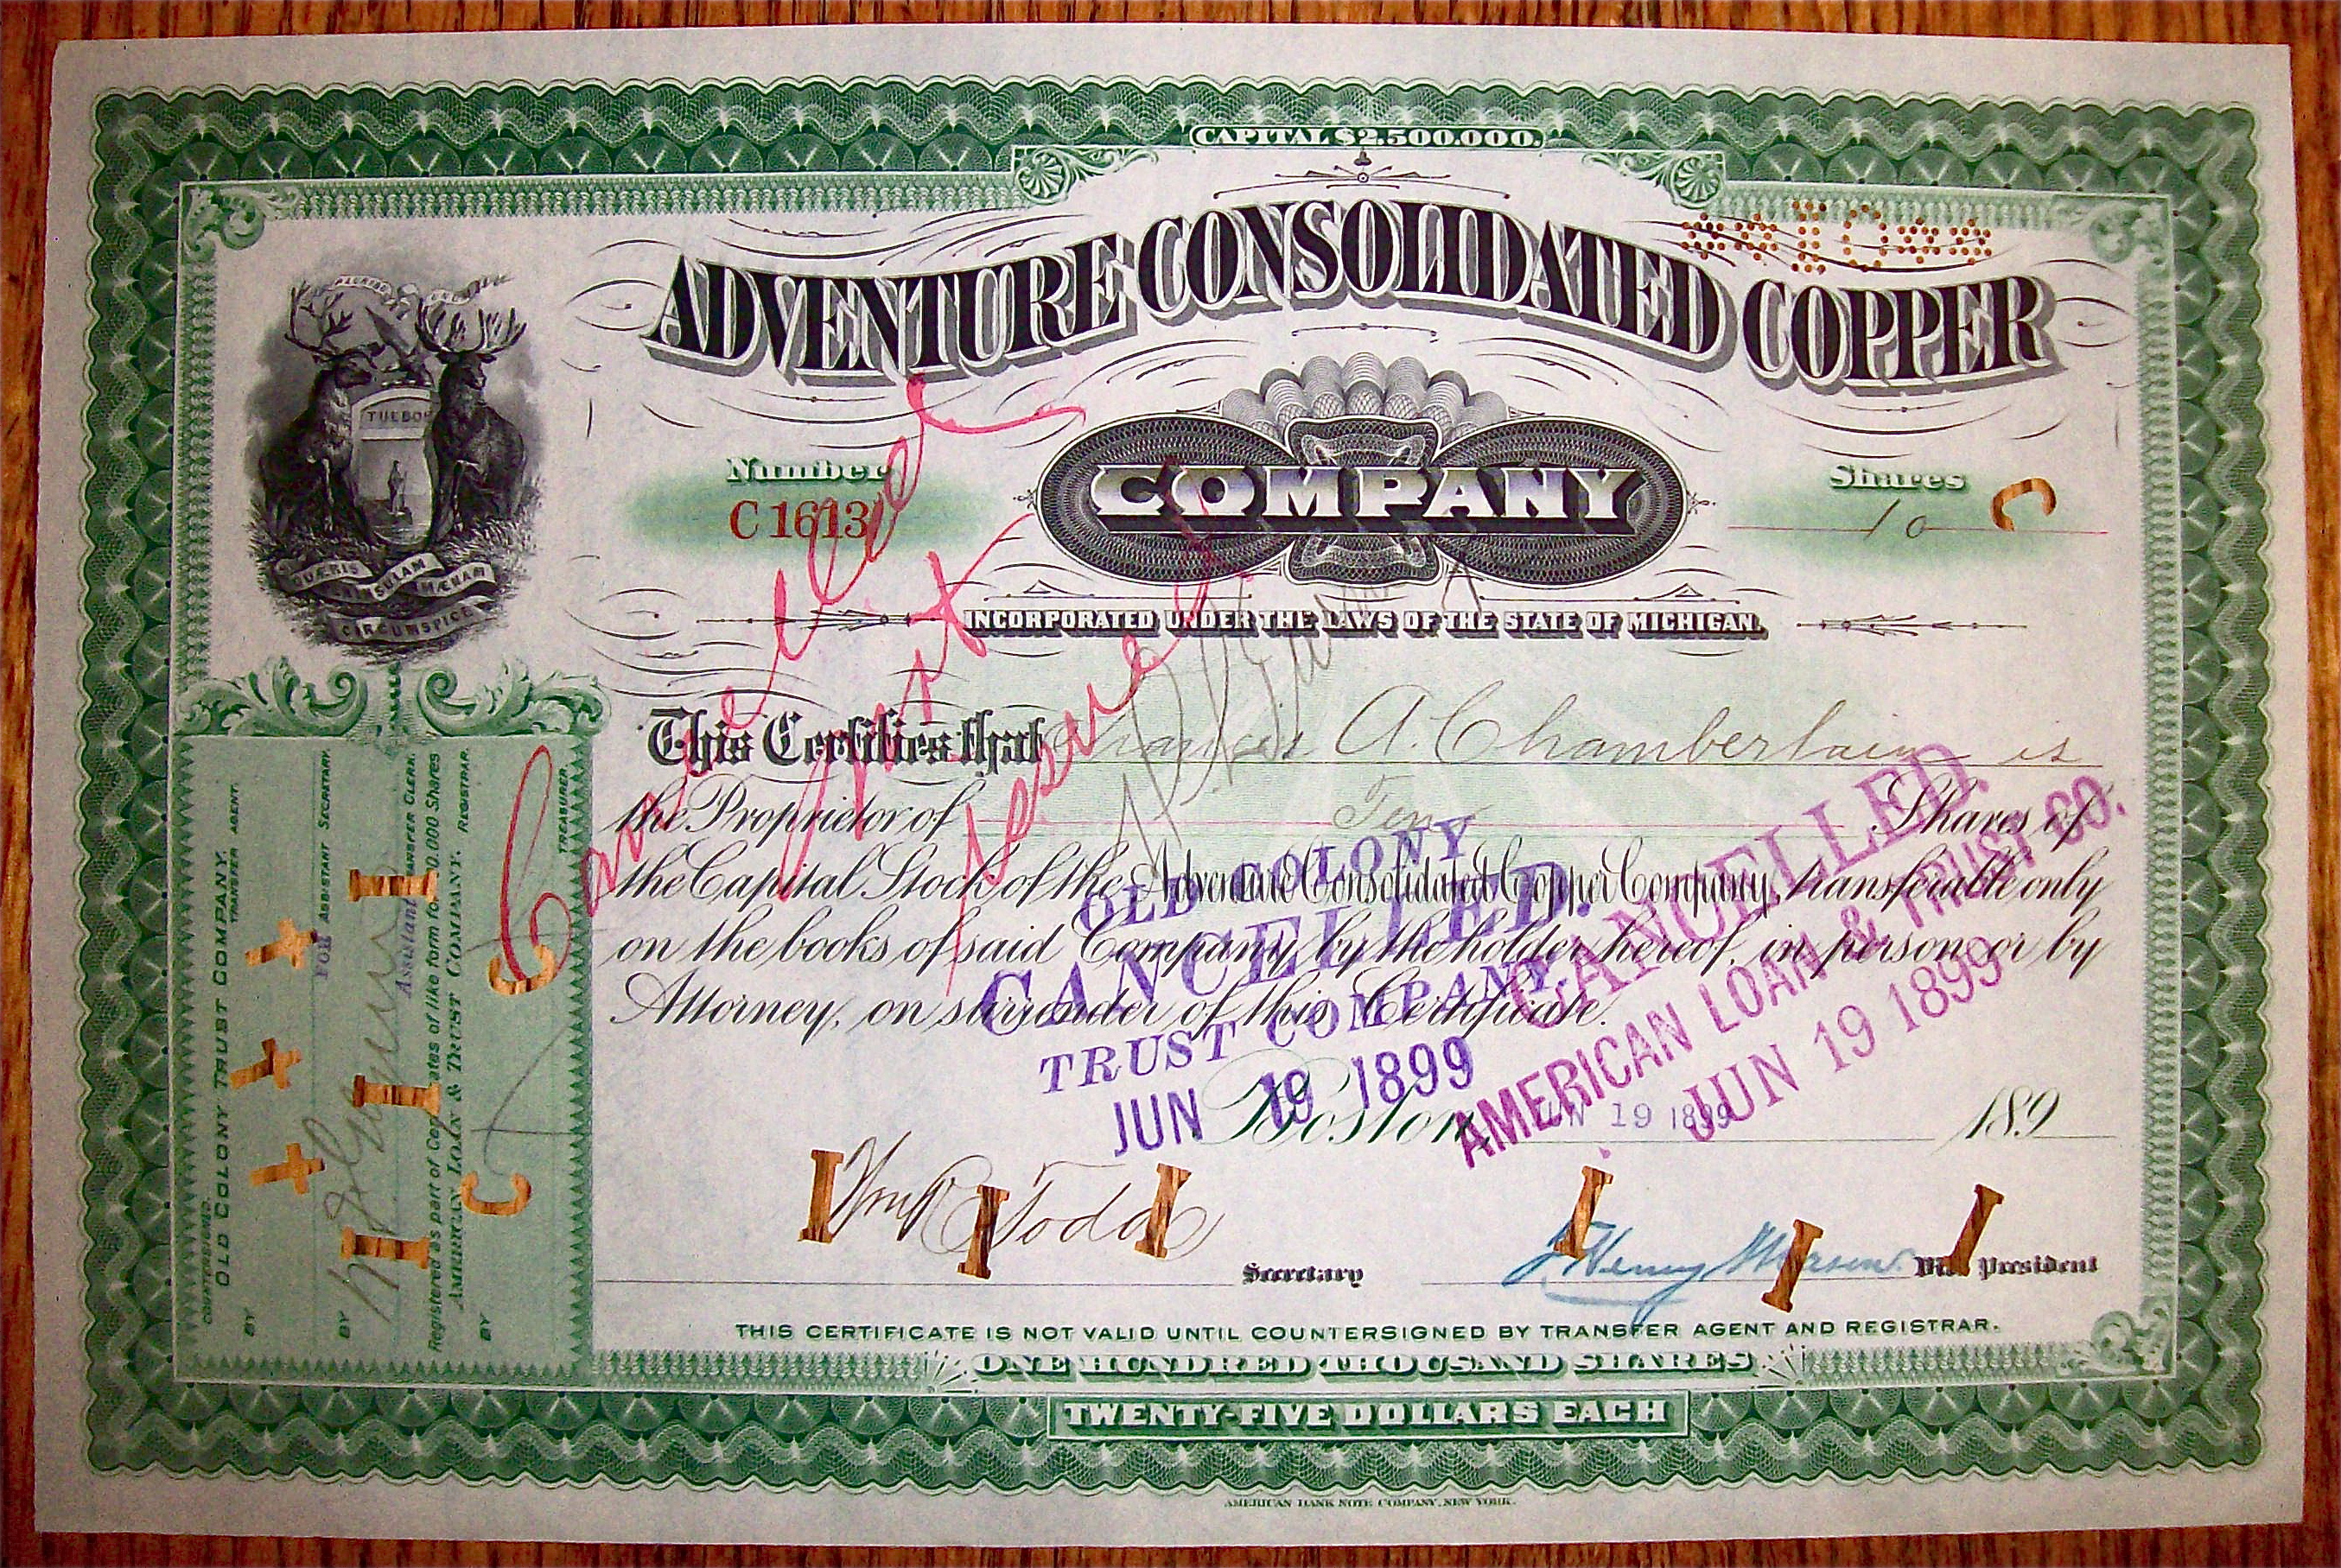 CAPITAL $2.500.000.
ADVENTURE CONSOLIDATED COPPER
COMPANY
TUEBOR
Number
C 1613
Shares
10
QUÆRIS
SULAM
AMŒNAM
CIRCUMSPICE
INCORPORATED UNDER THE LAWS OF THE STATE OF MICHIGAN.
Cancelled
not
issued
This Certifies that Francis A. Chamberlain is
the Proprietor of Ten Shares of
the Capital Stock of the Adventure Consolidated Copper Company, transferable only
on the books of said Company, by the holder hereof, in person or by
Attorney, on surrender of this Certificate.
OLD COLONY
CANCELLED.
TRUST COMPANY.
JUN 19 1899
CANCELLED.
AMERICAN LOAN & TRUST CO.
JUN 19 1899
Boston JUN 19 1899 189
Wm R Todd
Secretary
J Henry
President
COUNTERSIGNED.
OLD COLONY TRUST COMPANY.
TRANSFER AGENT.
BY
FOR ASSISTANT SECRETARY.
BY
Assistant TRANSFER CLERK.
Registered as part of shares of like form for Shares
AMERICAN LOAN & TRUST COMPANY. REGISTRAR.
BY
TREASURER
THIS CERTIFICATE IS NOT VALID UNTIL COUNTERSIGNED BY TRANSFER AGENT AND REGISTRAR.
ONE HUNDRED THOUSAND SHARES
TWENTY-FIVE DOLLARS EACH
AMERICAN BANK NOTE COMPANY, NEW YORK.